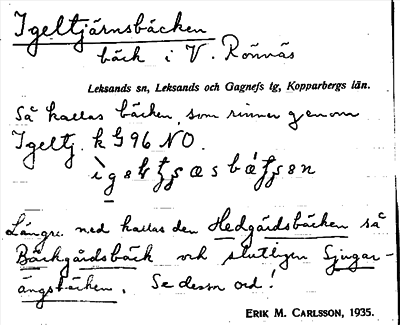 Igeltjärnsbäcken
bäck i V. Rönnäs
Leksands sn, Leksands och Gagnefs tg, Kopparbergs län.
Så kallas bäcken, som rinner genom
Igeltj. k G96 NO.
Längre ned kallas den Hedgårdsbäcken så
Bäckgårdsbäck och slutligen Sjugar-
ängsbäcken. Se dessa ord!
ERIK M. CARLSSON, 1935.